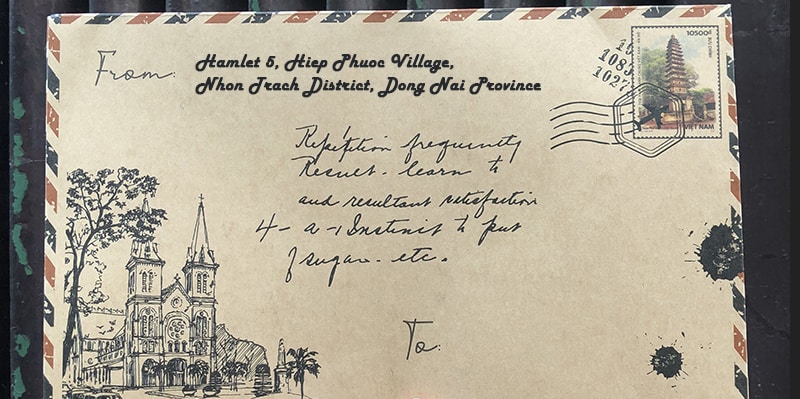 From:
Hamlet 5, Hiep Phuoc Village,
Nhon Trach District, Dong Nai Province
10500đ
VIỆT NAM
Repitition frequently
Result - learn to
and resultant satisfaction
4 - a - 1 Instinct to put
sugar - etc.
To: